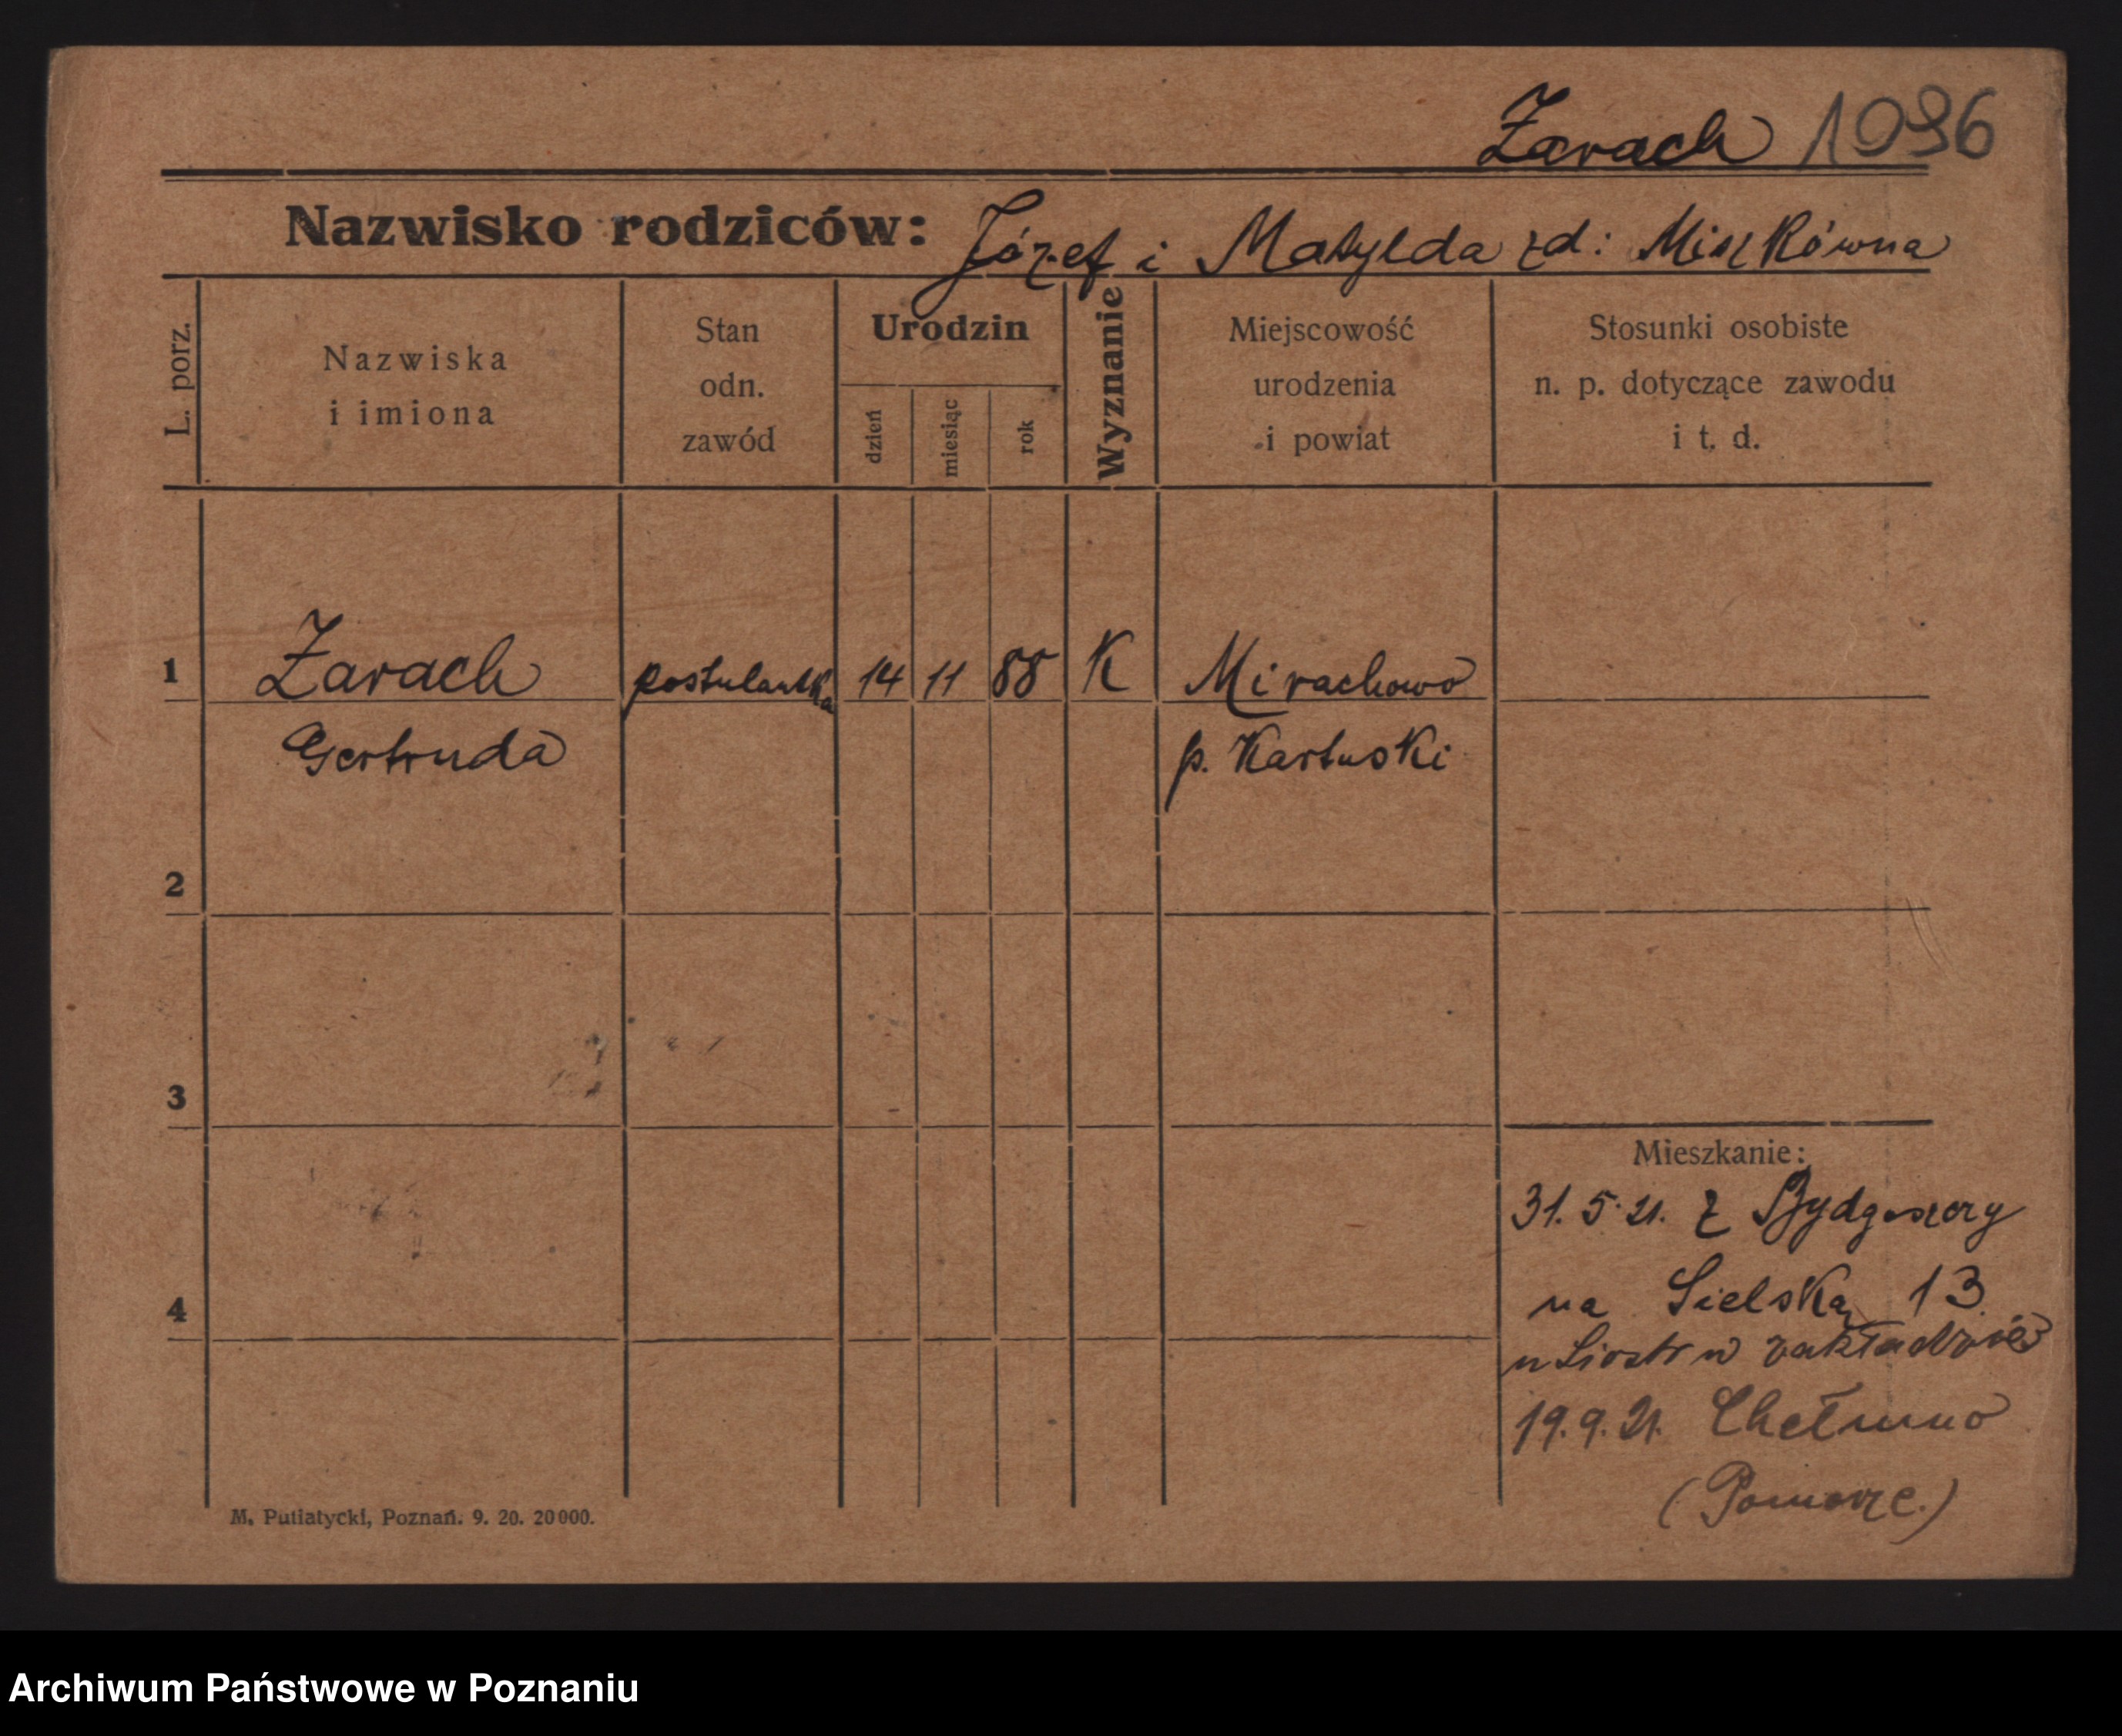 Żarach 1096
Nazwisko rodziców: Józef i Matylda zd: Miszkówna
L. porz.
Nazwiska
i imiona
Stan
odn.
zawód
Urodzin
dzień
miesiąc
rok
Wyznanie
Miejscowość
urodzenia
i powiat
Stosunki osobiste
n. p. dotyczące zawodu
i t. d.
1 Żarach postulantka 14 11 88 K Mirachowo
Gertruda p. Kartuski
2
3
4
Mieszkanie:
31. 5. 21. z Bydgoszczy
na Sielską 13
u Siostr w zakładzie
19. 9. 21. Chełmno
(Pomorze.)
M. Putiatycki, Poznań. 9. 20. 20000.
Archiwum Państwowe w Poznaniu